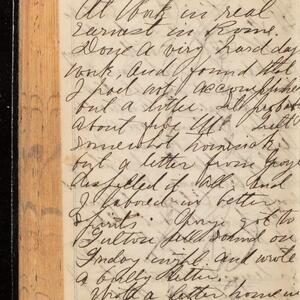 At work in real
earnest in room.
Done a very hard day
work, and found that
I had not accomplished
but a little.
about five
somewhat homesick,
but a letter from George
dispelled it all, and
I labored in better
spirits. George got to
Fulton safe sound on
Friday and wrote
a bully letter.
Wrote a letter home in